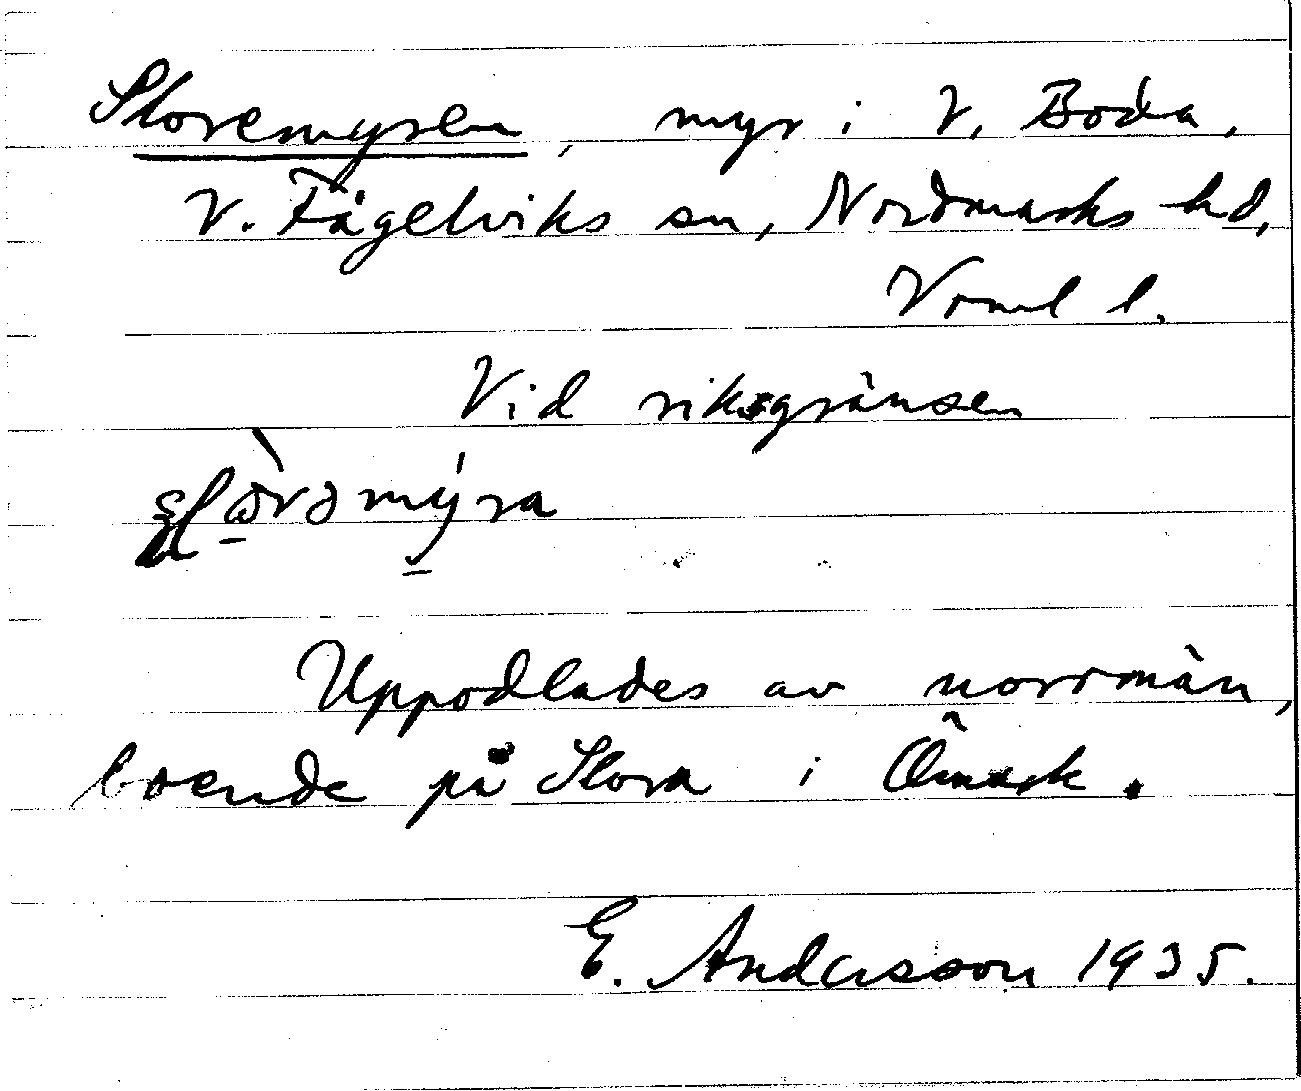 Sloremyren, myr i V. Boda,
V. Fågelviks sn, Nordmarks hd,
Vrml l.
Vid riksgränsen
Uppodlades av norrmän,
boende på Slora i Ömark.
E. Andersson 1935.